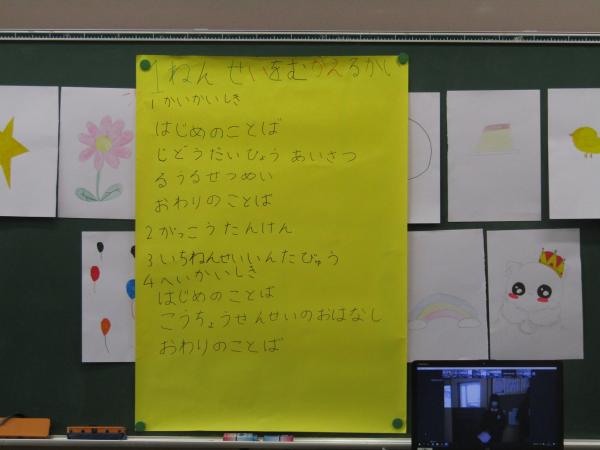 1ねんせいをむかえるかい
1 かいかいしき
はじめのことば
じどうだいひょう あいさつ
るうるせつめい
おわりのことば
2 がっこうたんけん
3 いちねんせいいんたびゅう
4 へいかいしき
はじめのことば
こうちょうせんせいのおはなし
おわりのことば